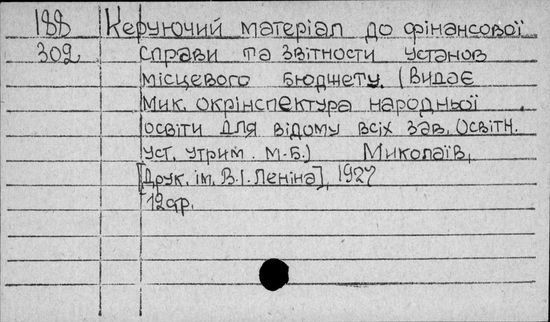 188 Керуючий матеріал до фінансової
302 справи та звітности установ
місцевого бюджету. (Видає
Мик. окрінспектура народньої
освіти для відому всіх зав. освітн.
уст. утрим. М.Б.) Миколаїв,
[Друк. ім. В.І. Леніна], 1927
12 стр.